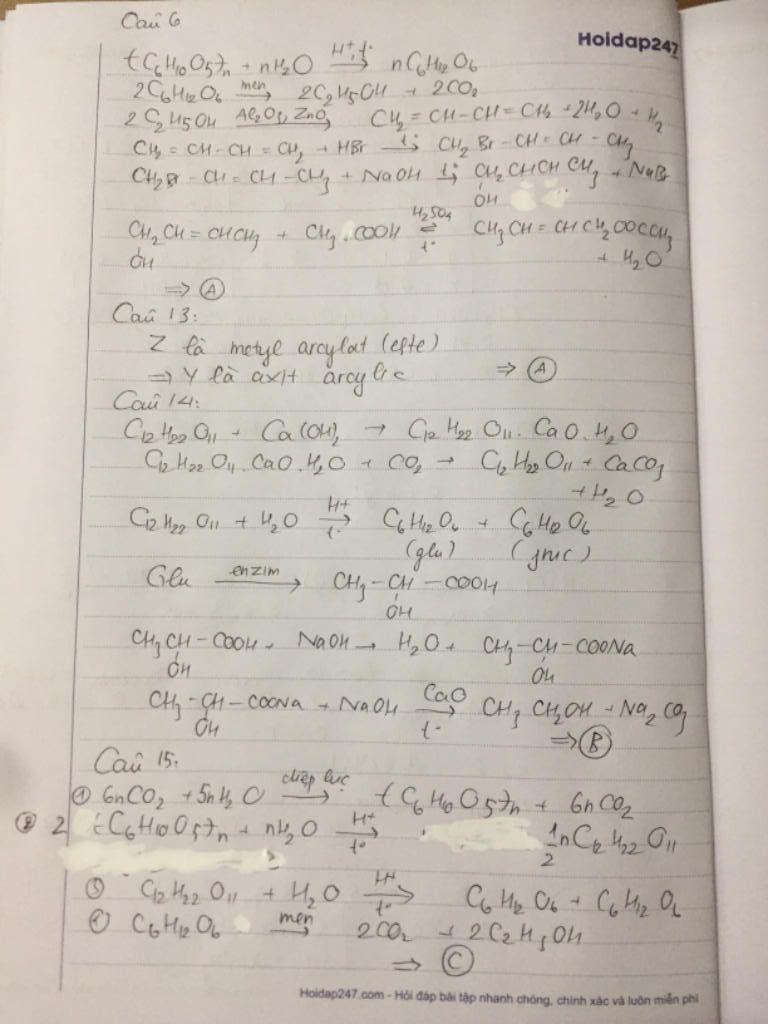 Câu 6
Hoidap247
(C6H10O5)n + nH2O H+, t° → nC6H12O6
2C6H12O6 men → 2C2H5OH + 2CO2
2C2H5OH Al2O3, ZnO → CH2 = CH-CH = CH2 + 2H2O + H2
CH2 = CH - CH = CH2 + HBr 1:1 → CH2Br - CH = CH - CH3
CH2Br - CH = CH - CH3 + NaOH 1:1 → CH2CHCHCH3 + NaBr
OH
CH2CH = CHCH3 + CH3COOH H2SO4 ⇌ t° CH3CH = CHCH2OOCCH3
OH + H2O
⇒ A
Câu 13:
Z là metyl arcylat (este)
⇒ Y là axit arcylic ⇒ A
Câu 14:
C12H22O11 + Ca(OH)2 → C12H22O11.CaO.H2O
C12H22O11.CaO.H2O + CO2 → C12H22O11 + CaCO3
+ H2O
C12H22O11 + H2O H+ → t° C6H12O6 + C6H12O6
(glu) (fruc)
Glu enzim → CH3 - CH - COOH
OH
CH3CH - COOH + NaOH → H2O + CH3 - CH - COONa
OH OH
CH3 - CH - COONa + NaOH CaO → t° CH3CH2OH + Na2CO3
OH ⇒ B
Câu 15:
① 6nCO2 + 5nH2O diệp lục → (C6H10O5)n + 6nCO2
② 2 (C6H10O5)n + nH2O H+ → t° 1/2 nC12H22O11
③ C12H22O11 + H2O H+ → t° C6H12O6 + C6H12O6
④ C6H12O6 men → 2CO2 + 2C2H5OH
⇒ C
Hoidap247.com - Hỏi đáp bài tập nhanh chóng, chính xác và luôn miễn phí